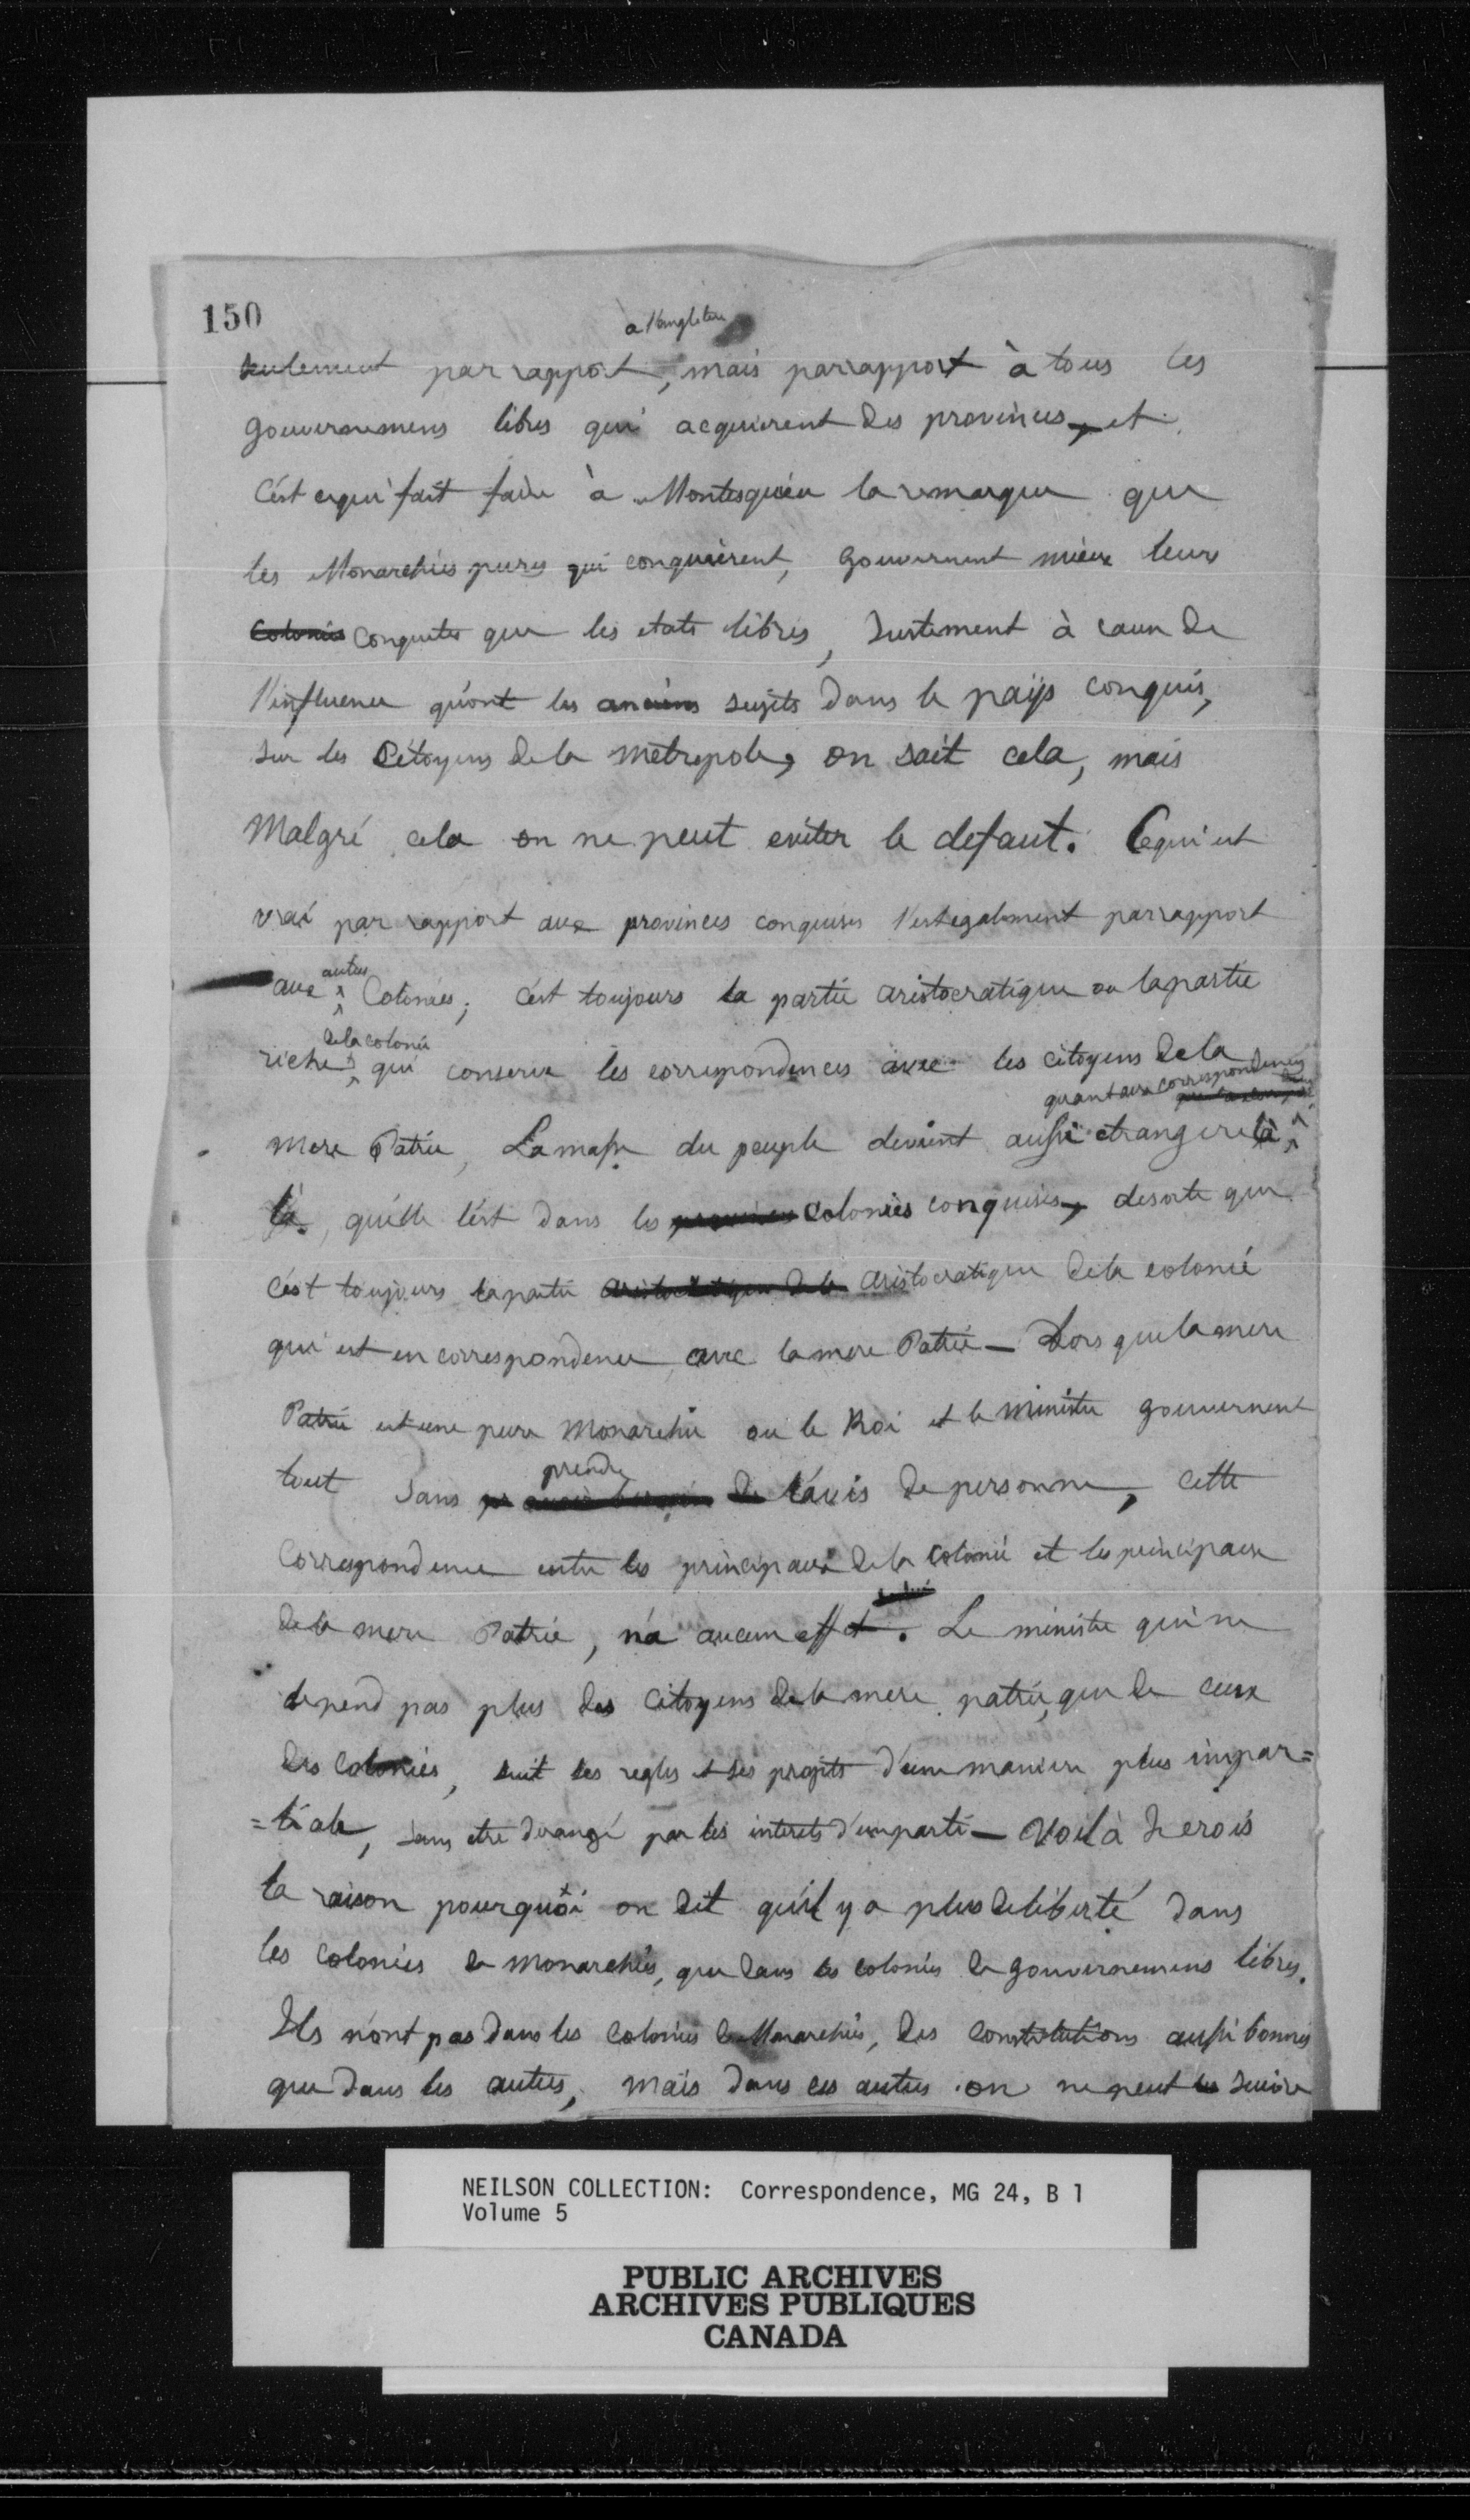 150
a l'angleterre
seulement par rapport, mais par rapport à tous les
gouvernemens libres qui acquierent des provinces, et
C'est cequi fait faire à Montesquieu la remarque que
les Monarchies pures qui conquierent, Gouvernent mieux leurs
Colonies Conquetes que les etats libres, Justement à cause de
l'influence qu'ont les anciens sujets dans le païs conquis,
sur les Citoyens dela metropole, on sait cela, mais
Malgré cela on ne peut eviter le defaut. Cequi est
vrai par rapport aux provinces conquises l'est egalement par rapport
autres
aux Colonies; c'est toujours la partie aristocratique ou la partie
dela colonie
riche, qui conserve les correspondences avec les citoyens dela
quant aux correspondences
mere Patrie, La masse du peuple devient aussi etrangere à
là, qu'elle l'est dans les provinces colonies conquises, desorte que
c'est toujours la partie aristocratique dela aristocratique dela colonie
qui est en correspondence avec la mere Patrie — Lors que la mere
Patrie est une pure Monarchie ou le Roi et le ministre gouvernent
prendre
tout sans avoir besoin de l'avis de personne, cette
Correspondence entre les principaux dela colonie et les principaux
dela mere Patrie, n'a aucun effet. Le ministre qui ne
depend pas plus des Citoyens dela mere patrie, que de ceux
des Colonies, suit ses regles et ses projets d'une maniere plus impar=
=tiale, sans etre derangé par les interets d'un parti — Voilà Je crois
la raison pourquoi on dit qu'il y a plus de liberté dans
les colonies de monarchies, que dans les colonies de gouvernemens libres.
Ils n'ont pas dans les colonies de Monarchies, des constitutions aussi bonnes
que dans les autres, mais dans ces autres on ne peut les suivre
NEILSON COLLECTION: Correspondence, MG 24, B 1
Volume 5
PUBLIC ARCHIVES
ARCHIVES PUBLIQUES
CANADA